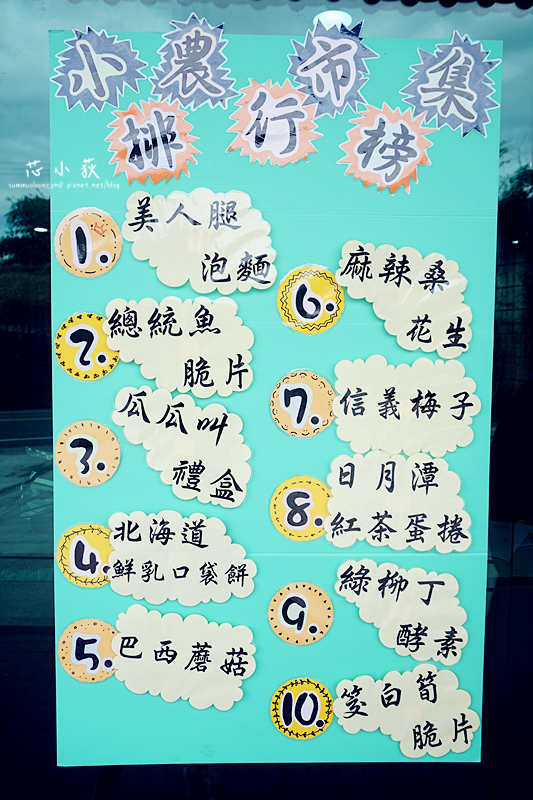 小農市集
排行榜
芯小荻
summuslovecynd.pixnet.net/blog
1.
美人腿
泡麵
2.
總統魚
脆片
3.
瓜瓜叫
禮盒
4.
北海道
鮮乳口袋餅
5.
巴西蘑菇
6.
麻辣桑
花生
7.
信義梅子
8.
日月潭
紅茶蛋捲
9.
綠柳丁
酵素
10.
筊白筍
脆片